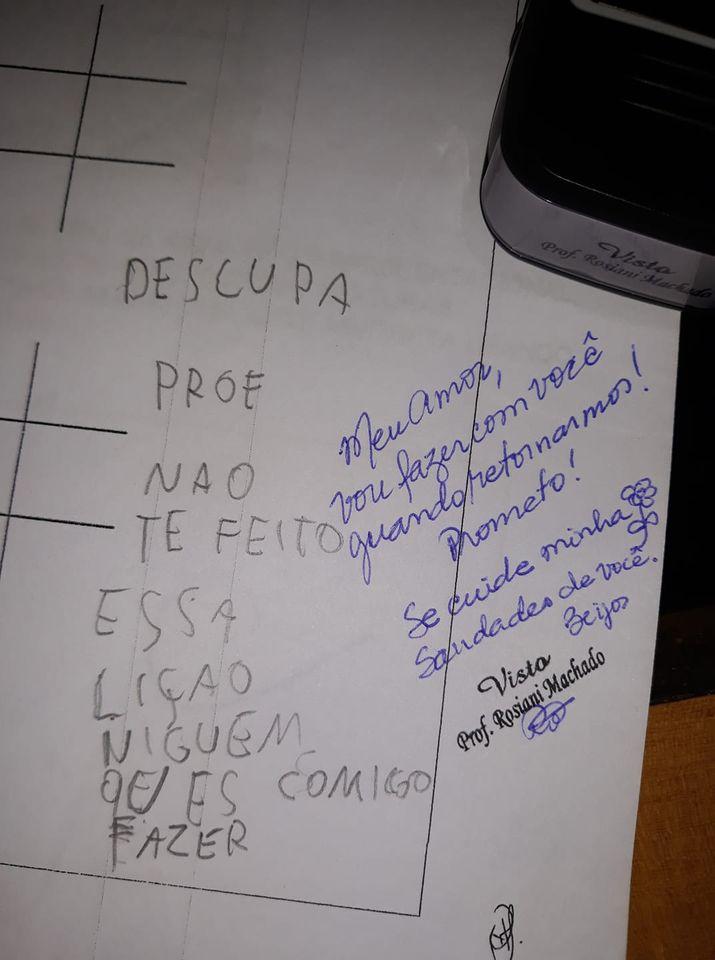 DESCUPA
PROE
NAO
TE FEITO
ESSA
LIÇAO
NIGUEM
QUES COMIGO
FAZER
Meu amor,
vou fazer com você
quando retornarmos!
Prometo!
Se cuide minha
Saudades de você.
Beijos
Visto
Prof. Rosiani Machado
Visto
Prof. Rosiani Machado